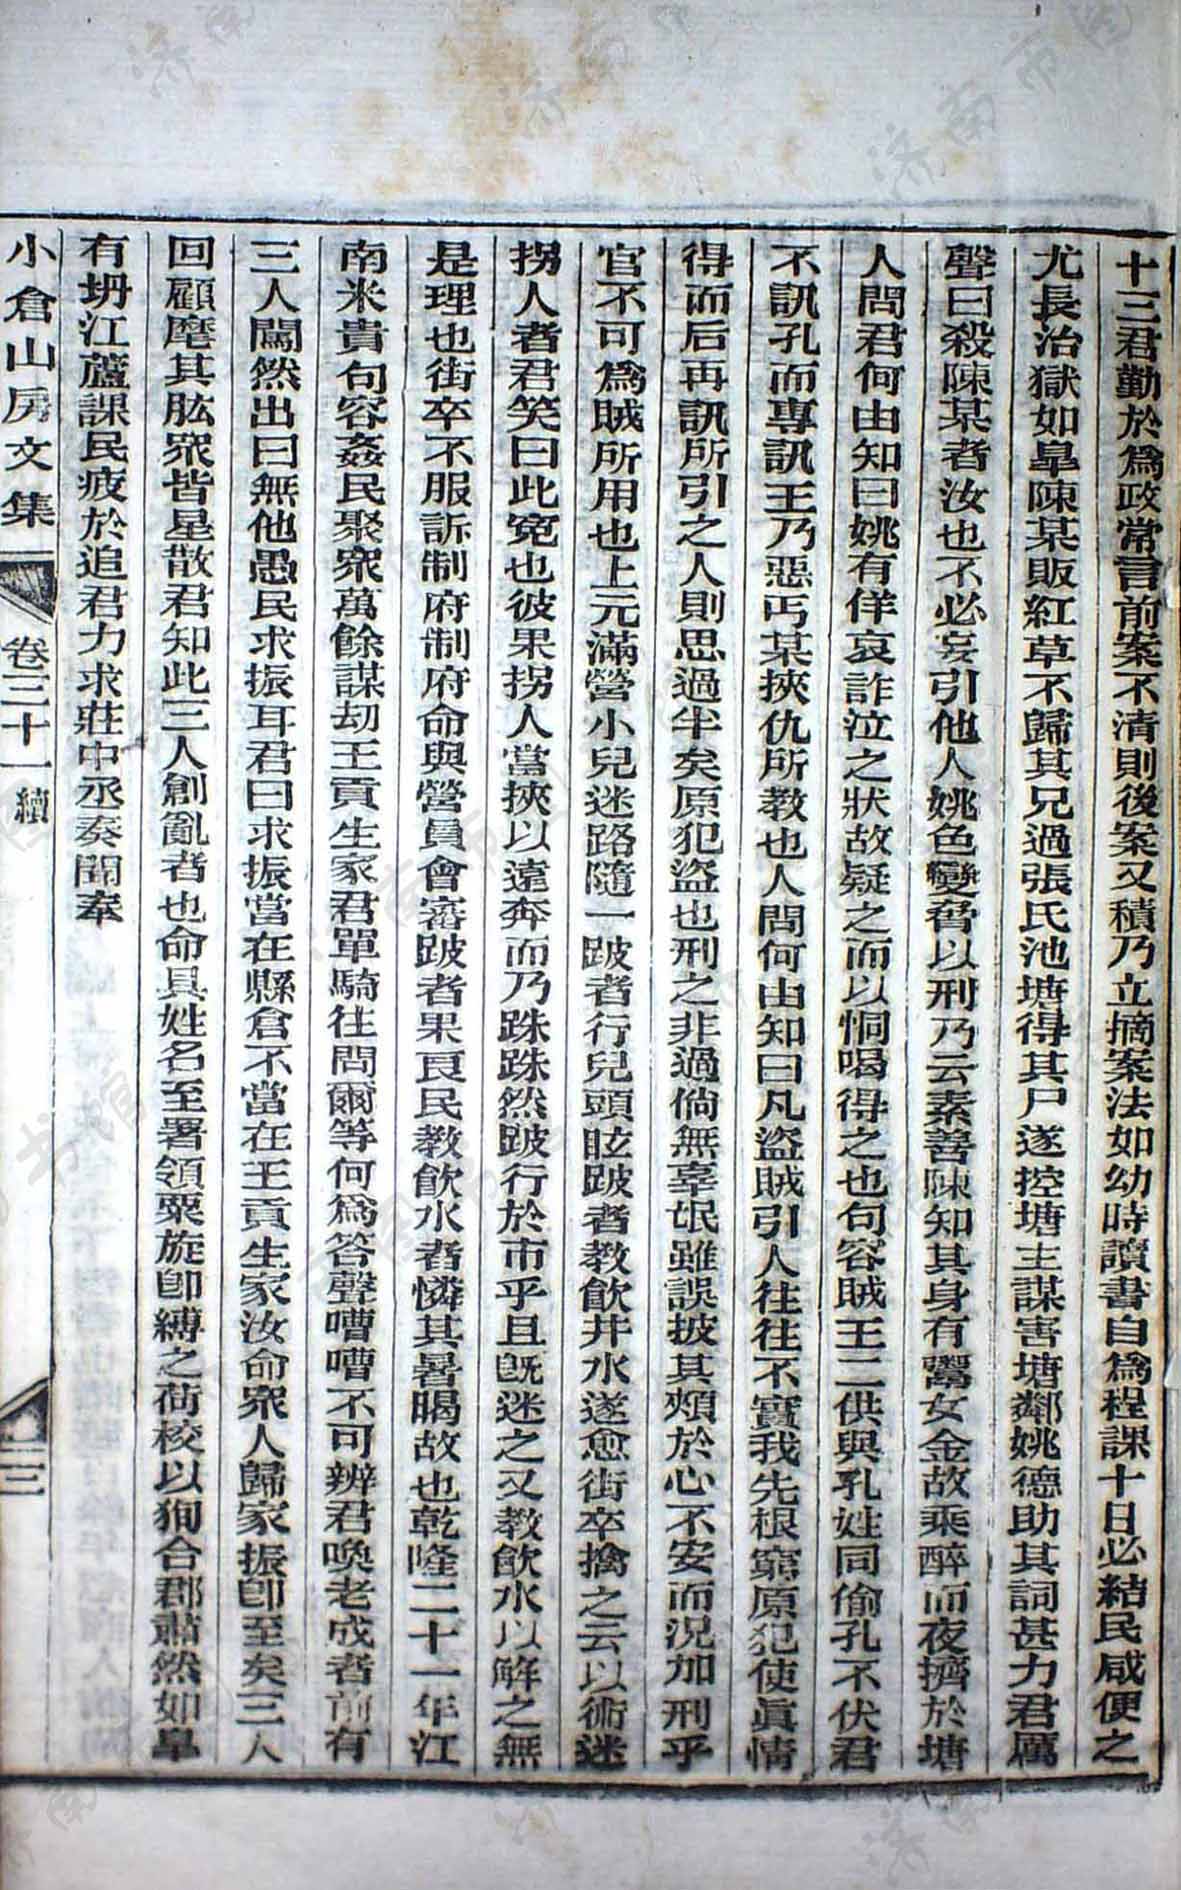 十三君勤於爲政常言前案不清則後案又積乃立摘案法如幼時讀書自爲程課十日必結民咸便之
尤長治獄如臯陳某販紅草不歸其兄過張氏池塘得其尸遂控塘主謀害塘鄰姚德助其詞甚力君厲
聲曰殺陳某者汝也不必妄引他人姚色變脅以刑乃云素善陳知其身有鬻女金故乘醉而夜擠於塘
人問君何由知曰姚有佯哀詐泣之狀故疑之而以恫喝得之也句容賊王二供與孔姓同偷孔不伏君
不訊孔而專訊王乃惡丐某挾仇所教也人問何由知曰凡盜賊引人往往不實我先根窮原犯使眞情
得而后再訊所引之人則思過半矣原犯盜也刑之非過倘無辜氓雖誤披其頰於心不安而況加刑乎
官不可爲賊所用也上元滿營小兒迷路隨一跛者行兒頭眩跛者教飮井水遂愈街卒擒之云以術迷
拐人者君笑曰此寃也彼果拐人當挾以遠奔而乃跦跦然跛行於市乎且旣迷之又教飮水以解之無
是理也街卒不服訴制府制府命與營員會審跛者果良民教飮水者憐其暑暍故也乾隆二十一年江
南米貴句容姦民聚衆萬餘謀刼王貢生家君單騎往問爾等何爲答聲嘈嘈不可辨君喚老成者前有
三人闖然出曰無他愚民求振耳君曰求振當在縣倉不當在王貢生家汝命衆人歸家振卽至矣三人
回顧麾其肱衆皆星散君知此三人創亂者也命具姓名至署領粟旋卽縛之荷校以狥合郡肅然如臯
有坍江蘆課民疲於追君力求莊中丞奏聞奉
小倉山房文集 卷三十一 續 三